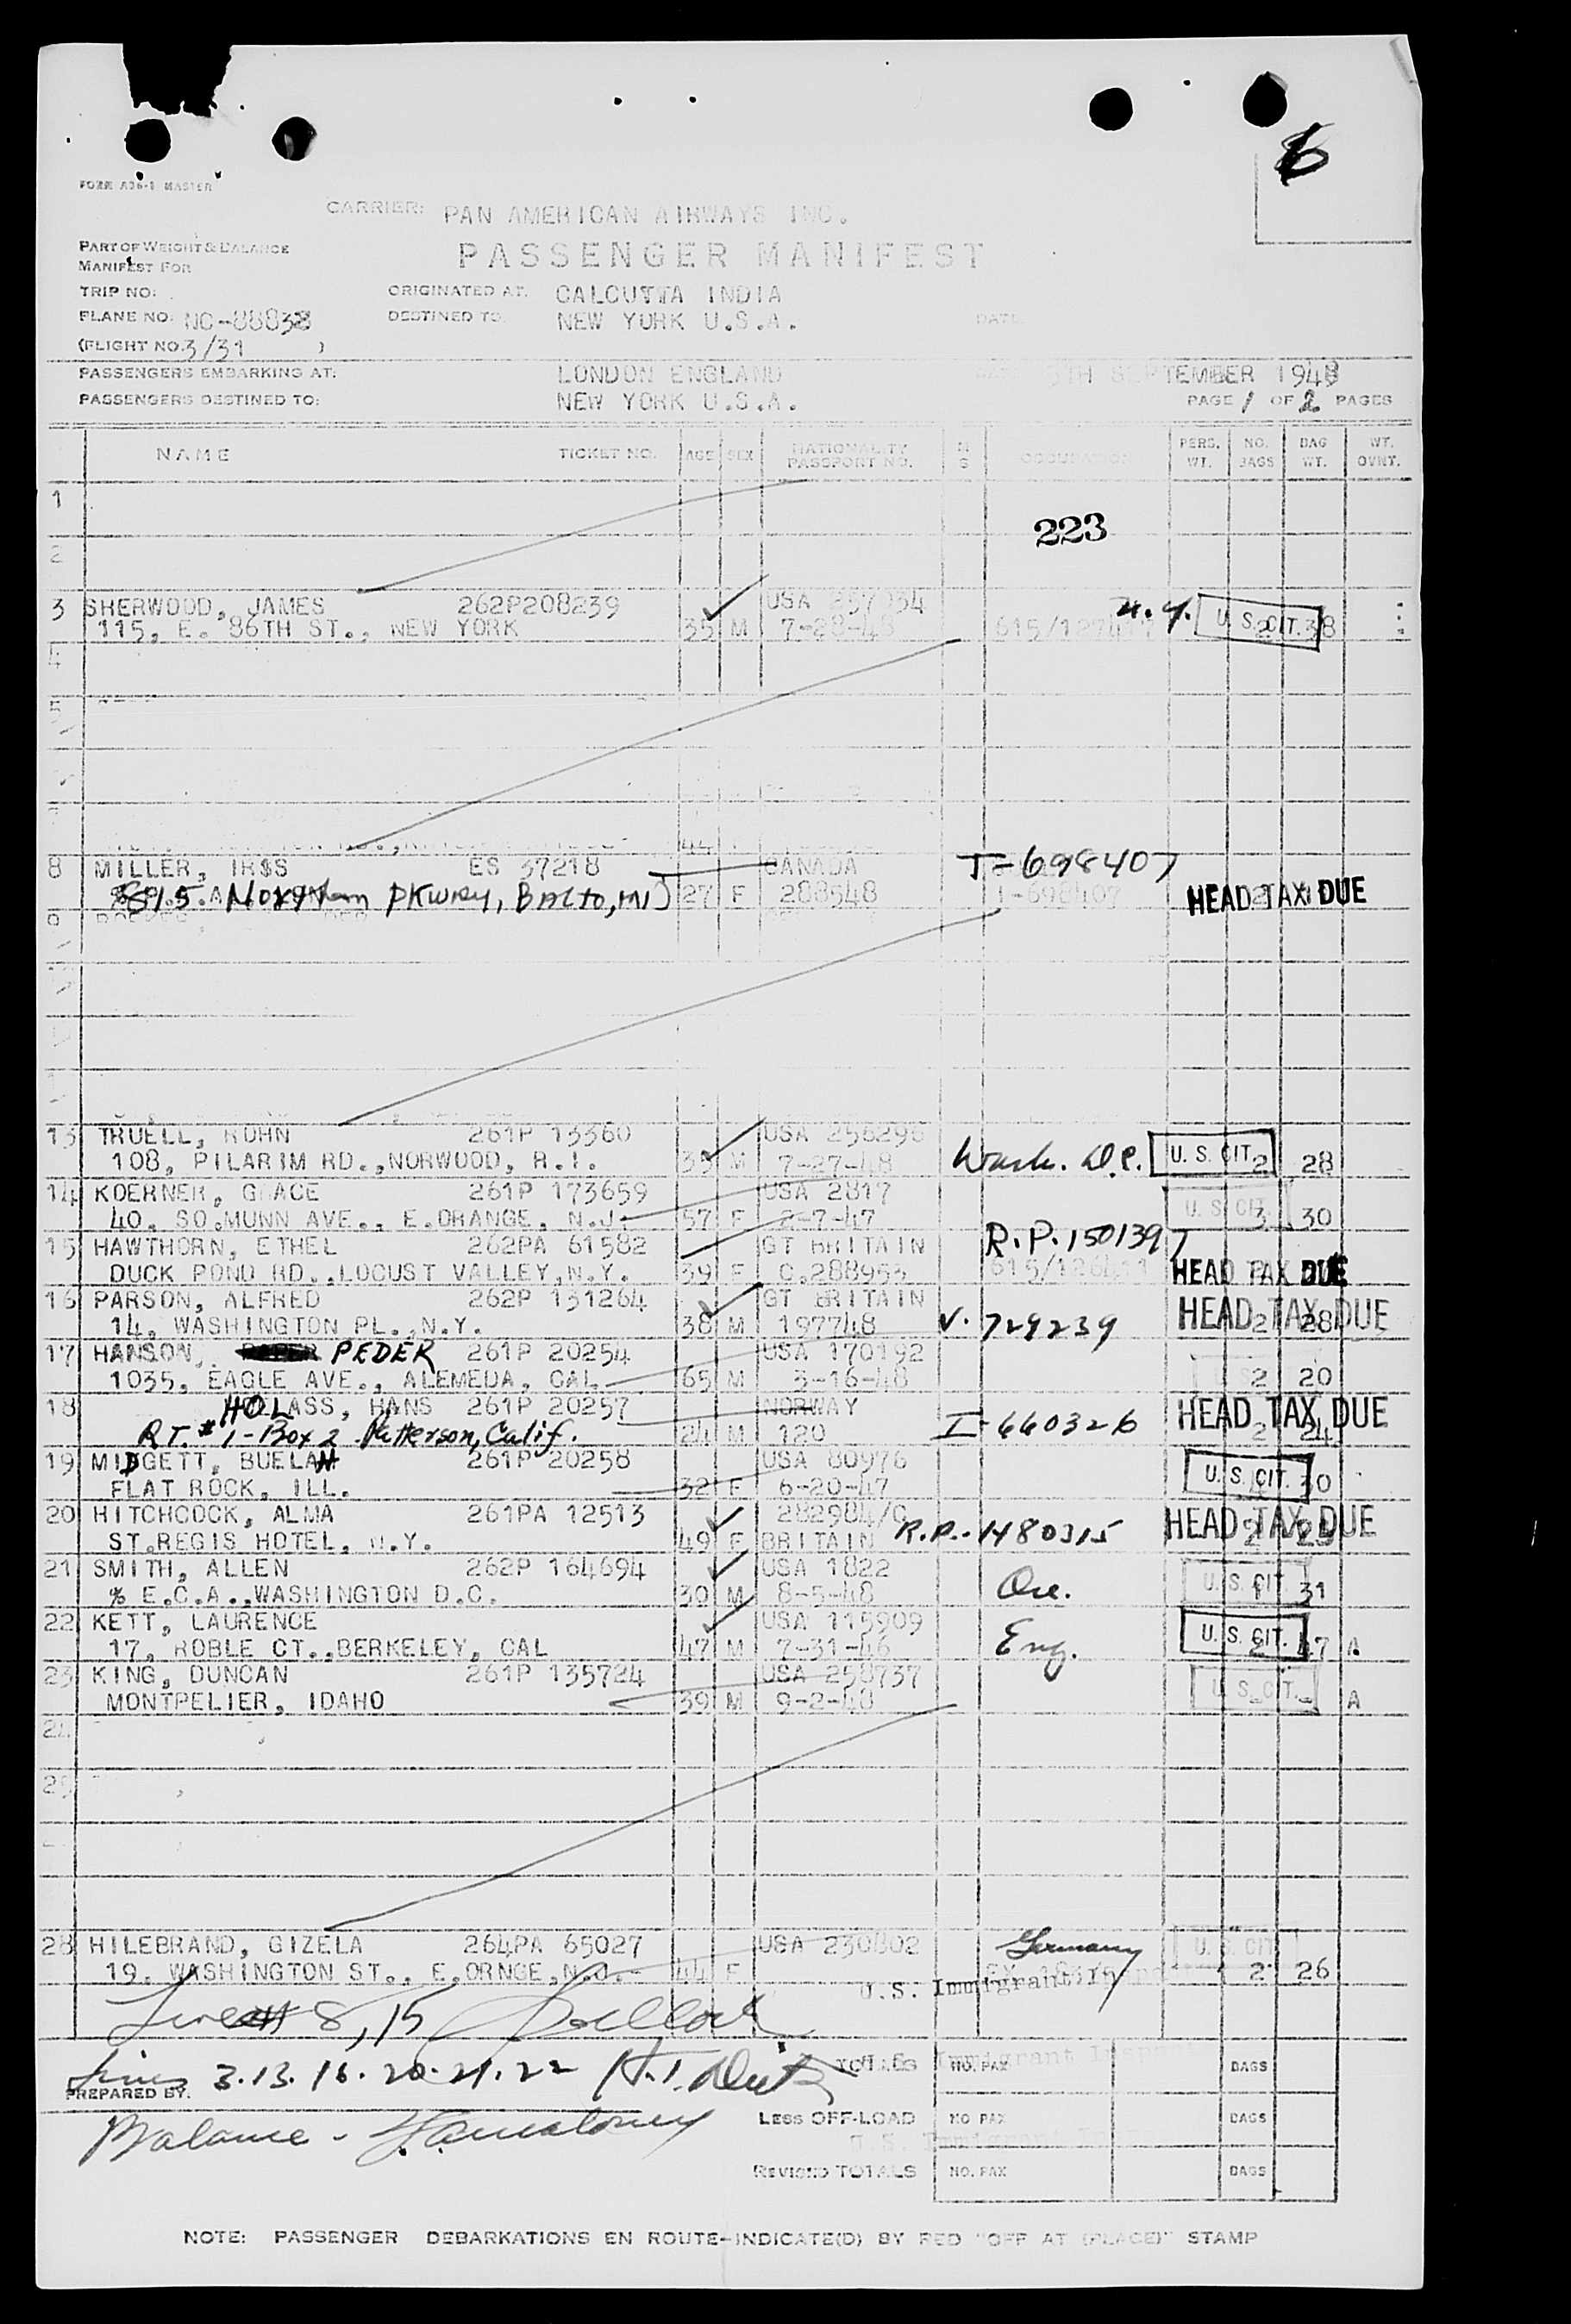 6
FORM A36-1 MASTER
CARRIER: PAN AMERICAN AIRWAYS INC.
PART OF WEIGHT & BALANCE
MANIFEST FOR
PASSENGER MANIFEST
TRIP NO: ORIGINATED AT. CALCUTTA INDIA
PLANE NO. NC-88838 DESTINED TO. NEW YORK U.S.A. DATE
(FLIGHT NO. 3/31 )
PASSENGERS EMBARKING AT: LONDON ENGLAND SEPTEMBER 1948
PASSENGERS DESTINED TO: NEW YORK U.S.A. PAGE 1 OF 2 PAGES
NAME TICKET NO. AGE SEX NATIONALITY PASSPORT NO. OCCUPATION PERS. WT. NO. BAGS BAG WT. WT. OVNT.
1
223
2
3 SHERWOOD, JAMES 262P208239 USA
115, E. 86TH ST., NEW YORK 35 M 7-28-48 N.Y. U.S. CIT. 2 38
4
5
44
8 MILLER, IR$S ES 37218 CANADA T-698407
815. Northern PKWAY, BALTO, MD 27 F 288548 I-698407 HEAD TAX DUE
9
13 TRUELL, ROHN 261P 13360 USA 256296
108, PILARIM RD., NORWOOD, R.I. 35 M 7-27-48 Wash. D.C. U.S. CIT. 2 28
14 KOERNER, GRACE 261P 173659 USA 2817
40, SO.MUNN AVE., E.ORANGE, N.J. 57 F 2-7-47 U.S. CIT. 3 30
15 HAWTHORN, ETHEL 262PA 61582 GT BRITAIN R.P. 1501397
DUCK POND RD.,LOCUST VALLEY,N.Y. 39 F C.288953 HEAD TAX DUE
16 PARSON, ALFRED 262P 131264 GT BRITAIN
14, WASHINGTON PL.,N.Y. 38 M 197748 V. 729239 HEAD TAX DUE 2 28
17 HANSON, PEDER 261P 20254 USA 170192
1035, EAGLE AVE., ALEMEDA, CAL 65 M 3-16-48 2 20
18 HOLASS, HANS 261P 20257 NORWAY
RT. # 1-Box 2 Patterson, Calif. 24 M 120 I-660326 HEAD TAX DUE 2 24
19 MIDGETT, BUELAH 261P 20258 USA 80976
FLAT ROCK, ILL. 32 F 6-20-47 U.S. CIT. 30
20 HITCHCOCK, ALMA 261PA 12513 282984/C
ST.REGIS HOTEL, N.Y. 49 F BRITAIN R.P. 1480315 HEAD TAX DUE
21 SMITH, ALLEN 262P 164694 USA 1822
% E.C.A.,WASHINGTON D.C. 30 M 8-5-48 Ore. U.S. CIT. 1 31
22 KETT, LAURENCE USA 115909
17, ROBLE CT.,BERKELEY, CAL 47 M 7-31-46 Eng. U.S. CIT. 2 47 A
23 KING, DUNCAN 261P 135724 USA 258737
MONTPELIER, IDAHO 39 M 9-2-48 U.S. CIT. - A
24
25
28 HILEBRAND, GIZELA 264PA 65027 USA 230802 Germany U.S. CIT
19, WASHINGTON ST., E.ORNGE,N.J. 44 F 2 26
U.S. Immigrant
8, 15
Lines 3. 13. 16. 20. 21. 22
PREPARED BY. NO. PAX BAGS
Balance -
LESS OFF-LOAD NO PAX BAGS
REVISED TOTALS NO. PAX BAGS
NOTE: PASSENGER DEBARKATIONS EN ROUTE-INDICATE(D) BY RED "OFF AT (PLACE)" STAMP